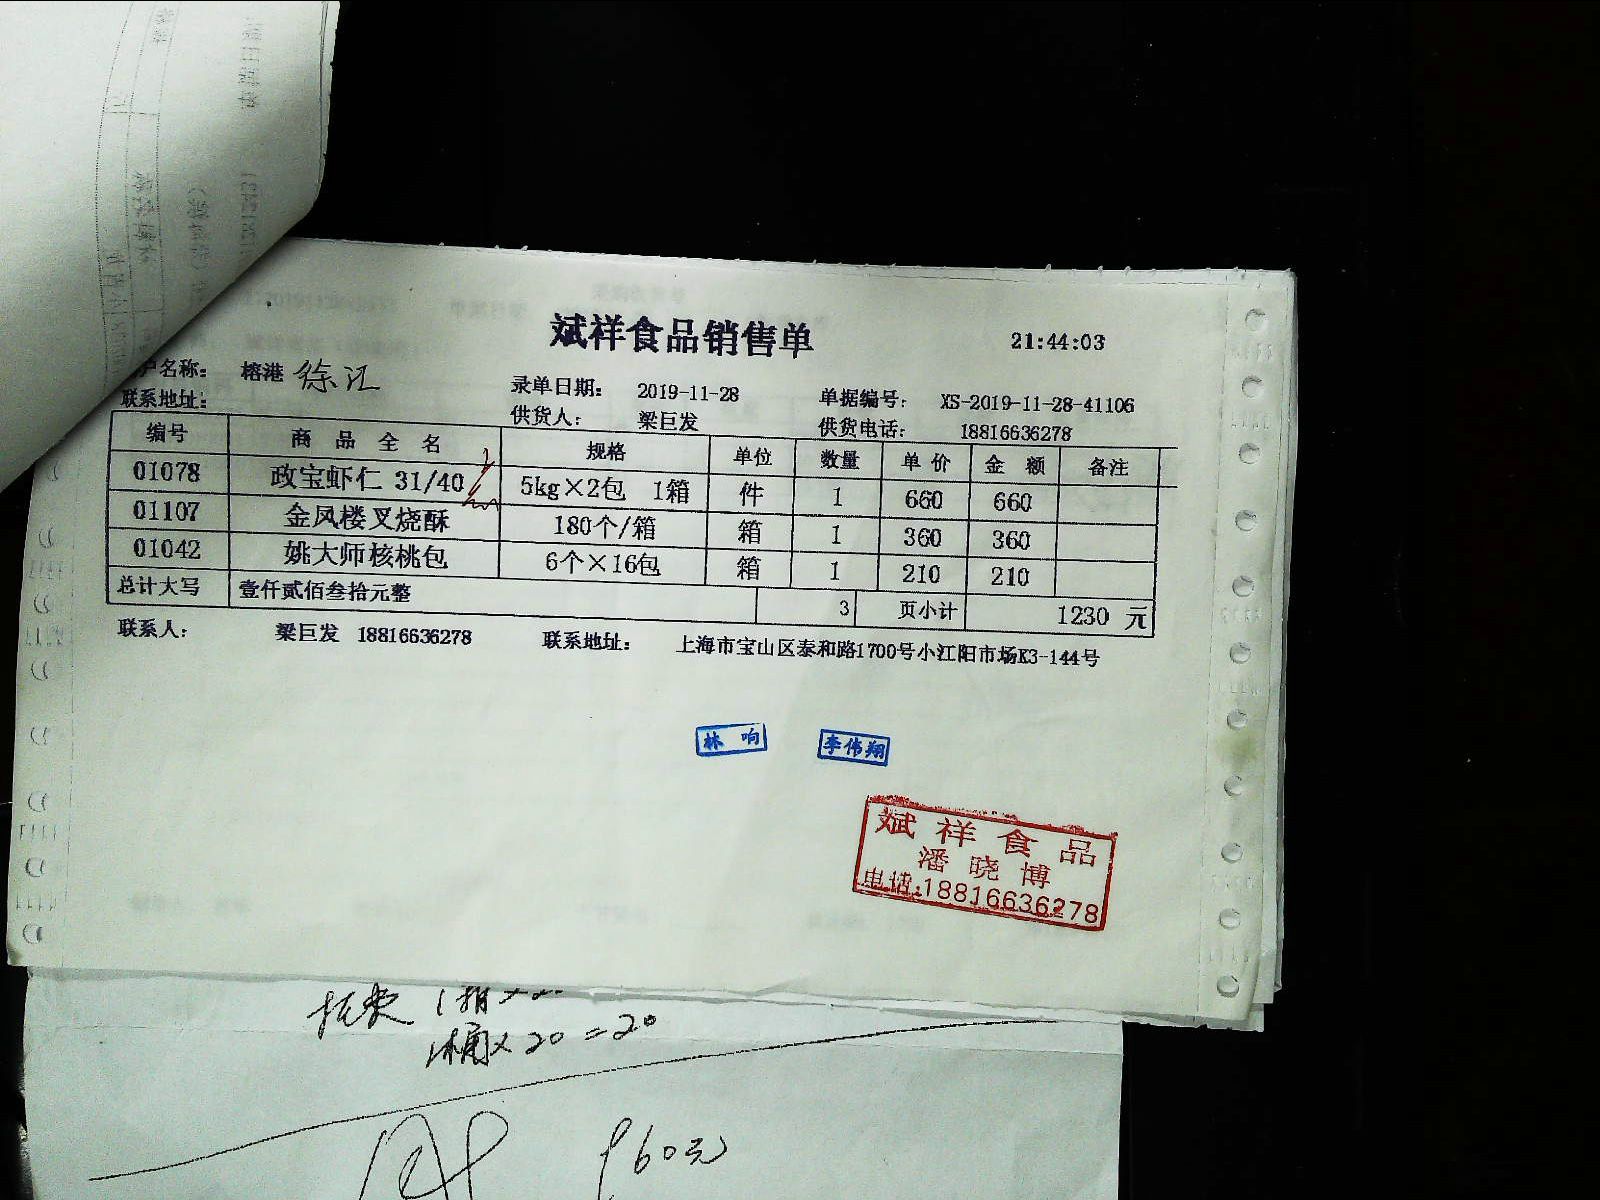 斌祥食品销售单
21:44:03
户名称: 榕港 徐汇
录单日期: 2019-11-28
单据编号: XS-2019-11-28-41106
联系地址:
供货人: 梁巨发
供货电话: 18816636278
编号 商品全名 规格 单位 数量 单价 金额 备注
01078 政宝虾仁 31/40 5kg×2包 1箱 件 1 660 660
01107 金凤楼叉烧酥 180个/箱 箱 1 360 360
01042 姚大师核桃包 6个×16包 箱 1 210 210
总计大写 壹仟贰佰叁拾元整 3 页小计 1230 元
联系人: 梁巨发 18816636278 联系地址: 上海市宝山区泰和路1700号小江阳市场K3-144号
林响
李伟翔
斌祥食品
潘晓博
电话:18816636278
1桶×20=20
60元